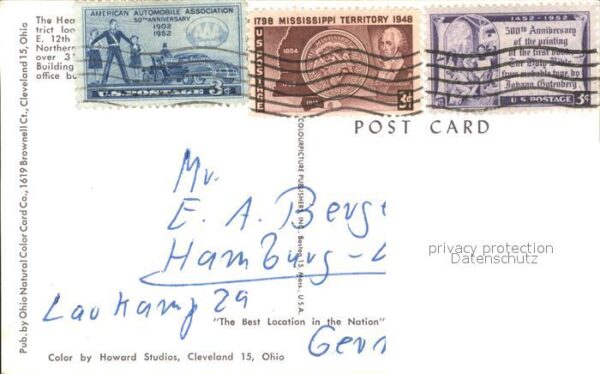 The Hea
trict loc
E. 12th
Northern
over 3
Building
office bu
AMERICAN AUTOMOBILE ASSOCIATION
50TH ANNIVERSARY
1902
1952
U.S. POSTAGE 3¢
1798 MISSISSIPPI TERRITORY 1948
U.S. POSTAGE
1804
3¢
1452-1952
500th Anniversary
of the printing
of the first book,
The Holy Bible,
from movable type, by
Johann Gutenberg
U.S. POSTAGE 3¢
POST CARD
Pub. by Ohio Natural Color Card Co., 1619 Brownell Ct., Cleveland 15, Ohio
COLOURPICTURE PUBLISHERS, INC., Boston 15, Mass., U.S.A.
Mr.
E. A. Berge
Hamburg-L
privacy protection
Datenschutz
"The Best Location in the Nation"
Germ
Color by Howard Studios, Cleveland 15, Ohio